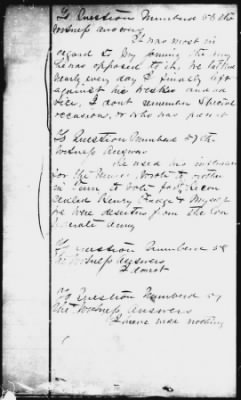 To Question Numbered 56 the
witness answers
It was most in
regard to my joining the army
he was opposed to it. We talked
nearly every day I finally left
against his wishes and ad
vice, I dont remember special
occasion, or who was present
To Question Numbered 57 the
witness Answers
He used his influence
for the Union, wrote to mother
in to vote for
called Henry & Myself
we were deserters from the Con
federate Army
To Question Numbered 58
the Witness Answers
I do not
To Question Numbered 59
the Witness answers
I know nothing